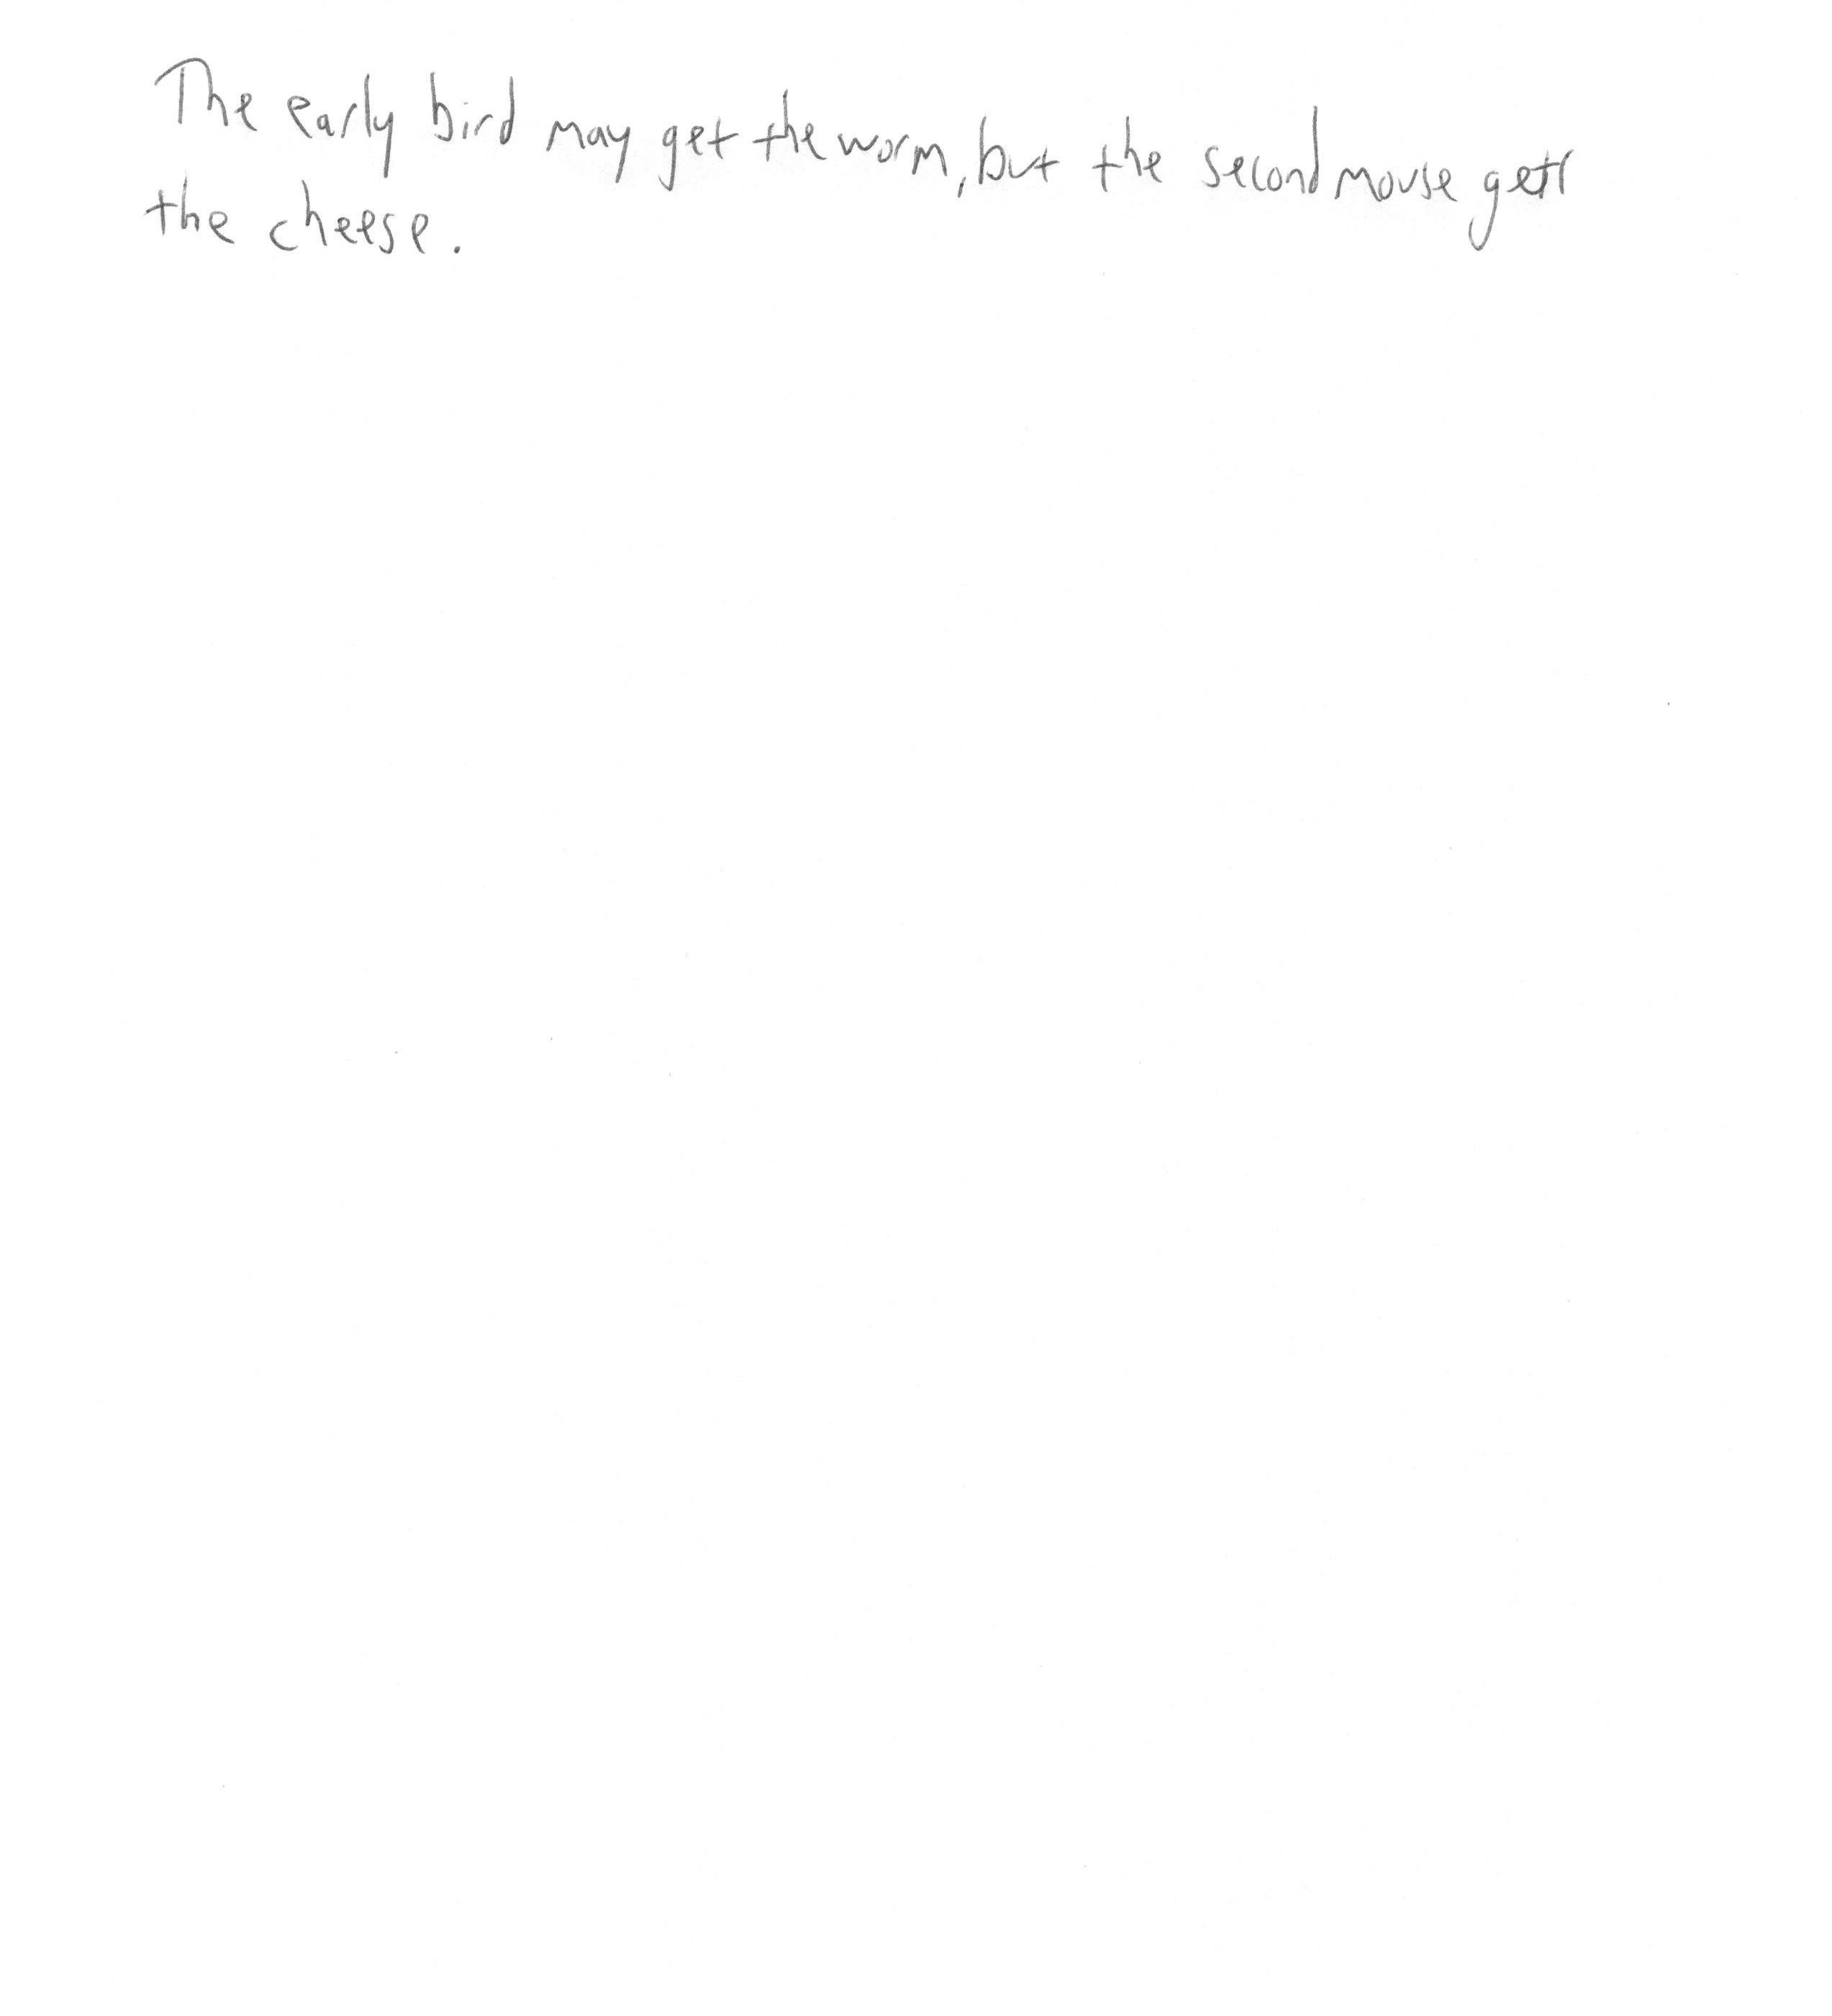 The early bird may get the worm, but the second mouse gets
the cheese.